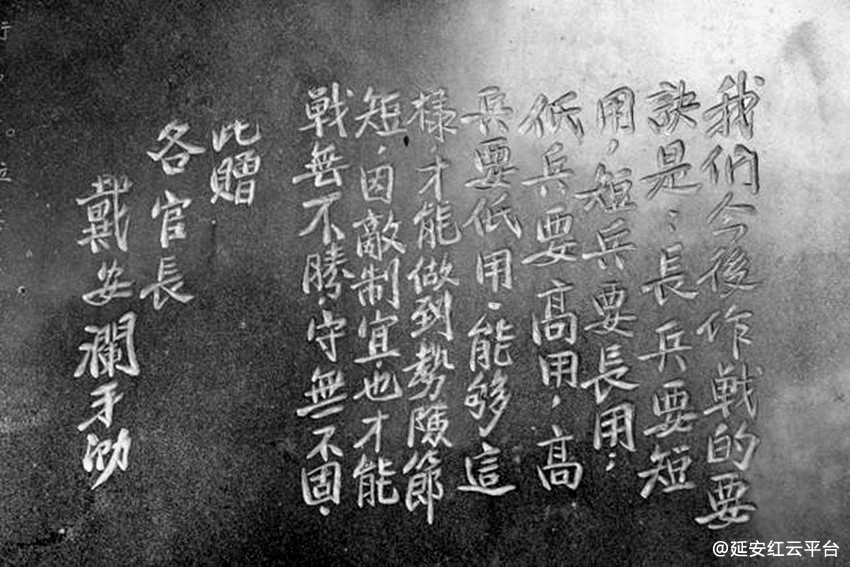 我们今後作戰的要
訣是：長兵要短
用，短兵要長用；
低兵要高用，高
兵要低用。能够這
樣，才能做到勢險節
短，因敵制宜，也才能
戰無不勝，守無不固。
此贈
各官長
戴安瀾手泐
@延安红云平台